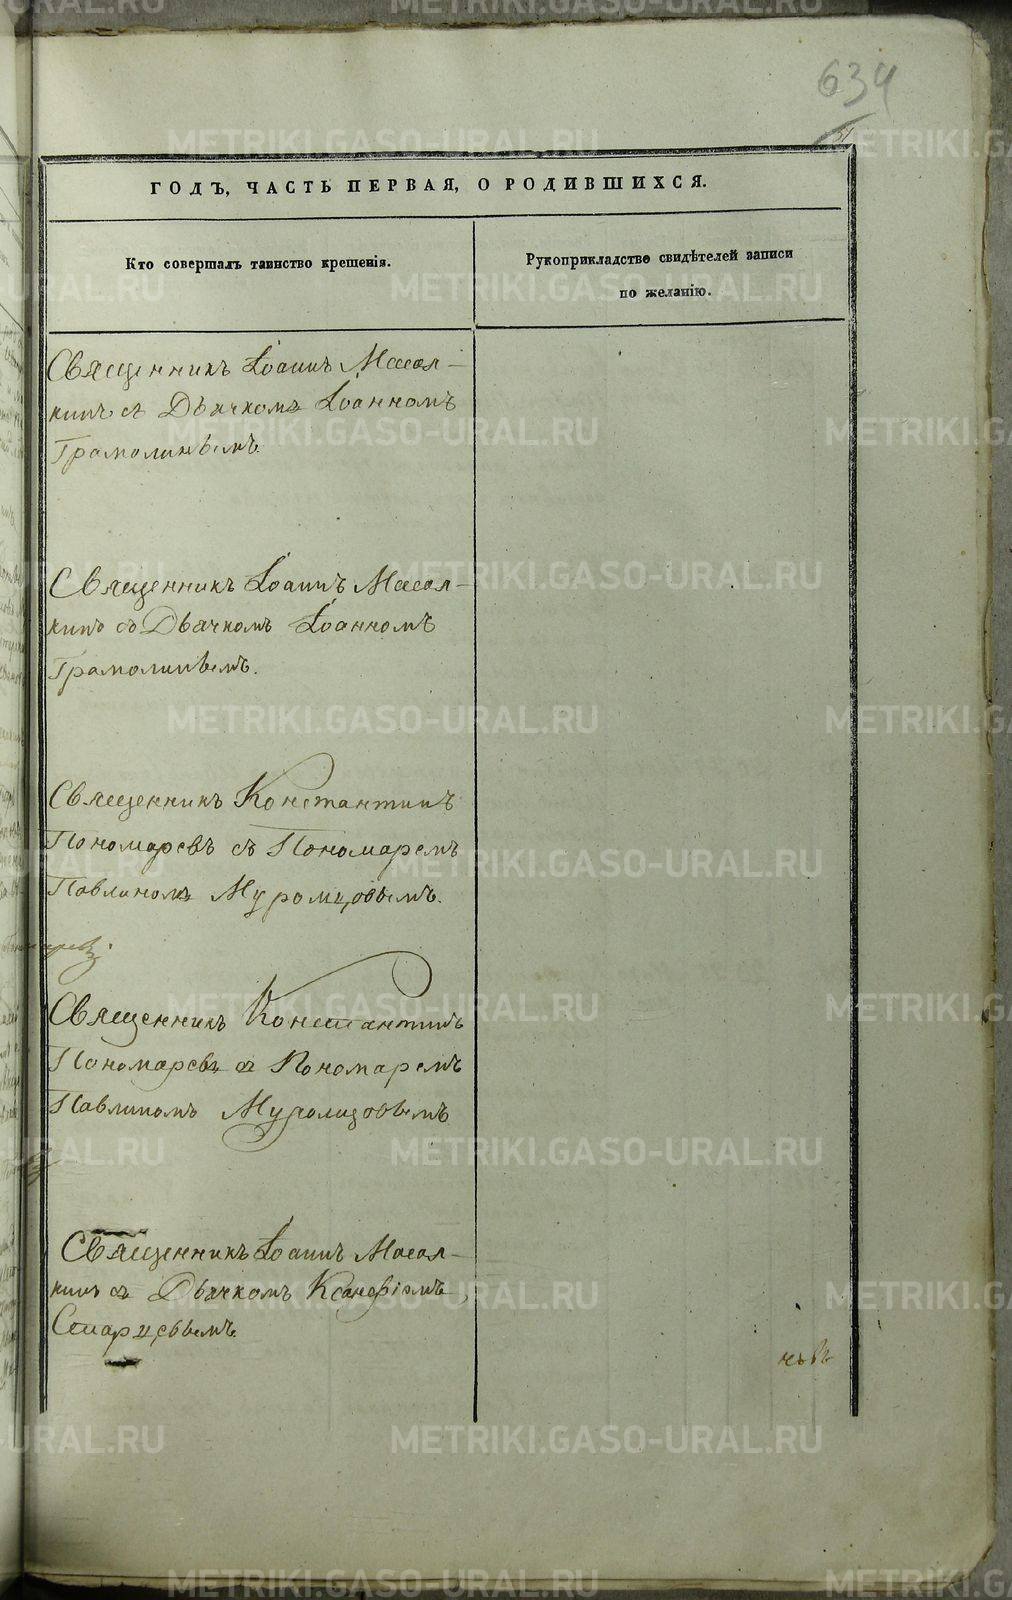 634
51
ГОДЪ, ЧАСТЬ ПЕРВАЯ, О РОДИВШИХСЯ.
Кто совершалъ таинство крещенія.
Рукоприкладство свидѣтелей записи
по желанію.
Священникъ Іоаннъ Масал-
кинъ съ Дьячкомъ Іоанномъ
Грамолинымъ.
Священникъ Іоаннъ Масал-
кинъ съ Дьячкомъ Іоанномъ
Грамолинымъ.
Священникъ Константинъ
Пономаревъ съ Пономаремъ
Павлиномъ Муромцовымъ.
Священникъ Константинъ
Пономаревъ съ Пономаремъ
Павлиномъ Муромцовымъ
Священникъ Іоаннъ Масал-
кинъ съ Дьячкомъ Ксанфіемъ
Старцевымъ.
METRIKI.GASO-URAL.RU